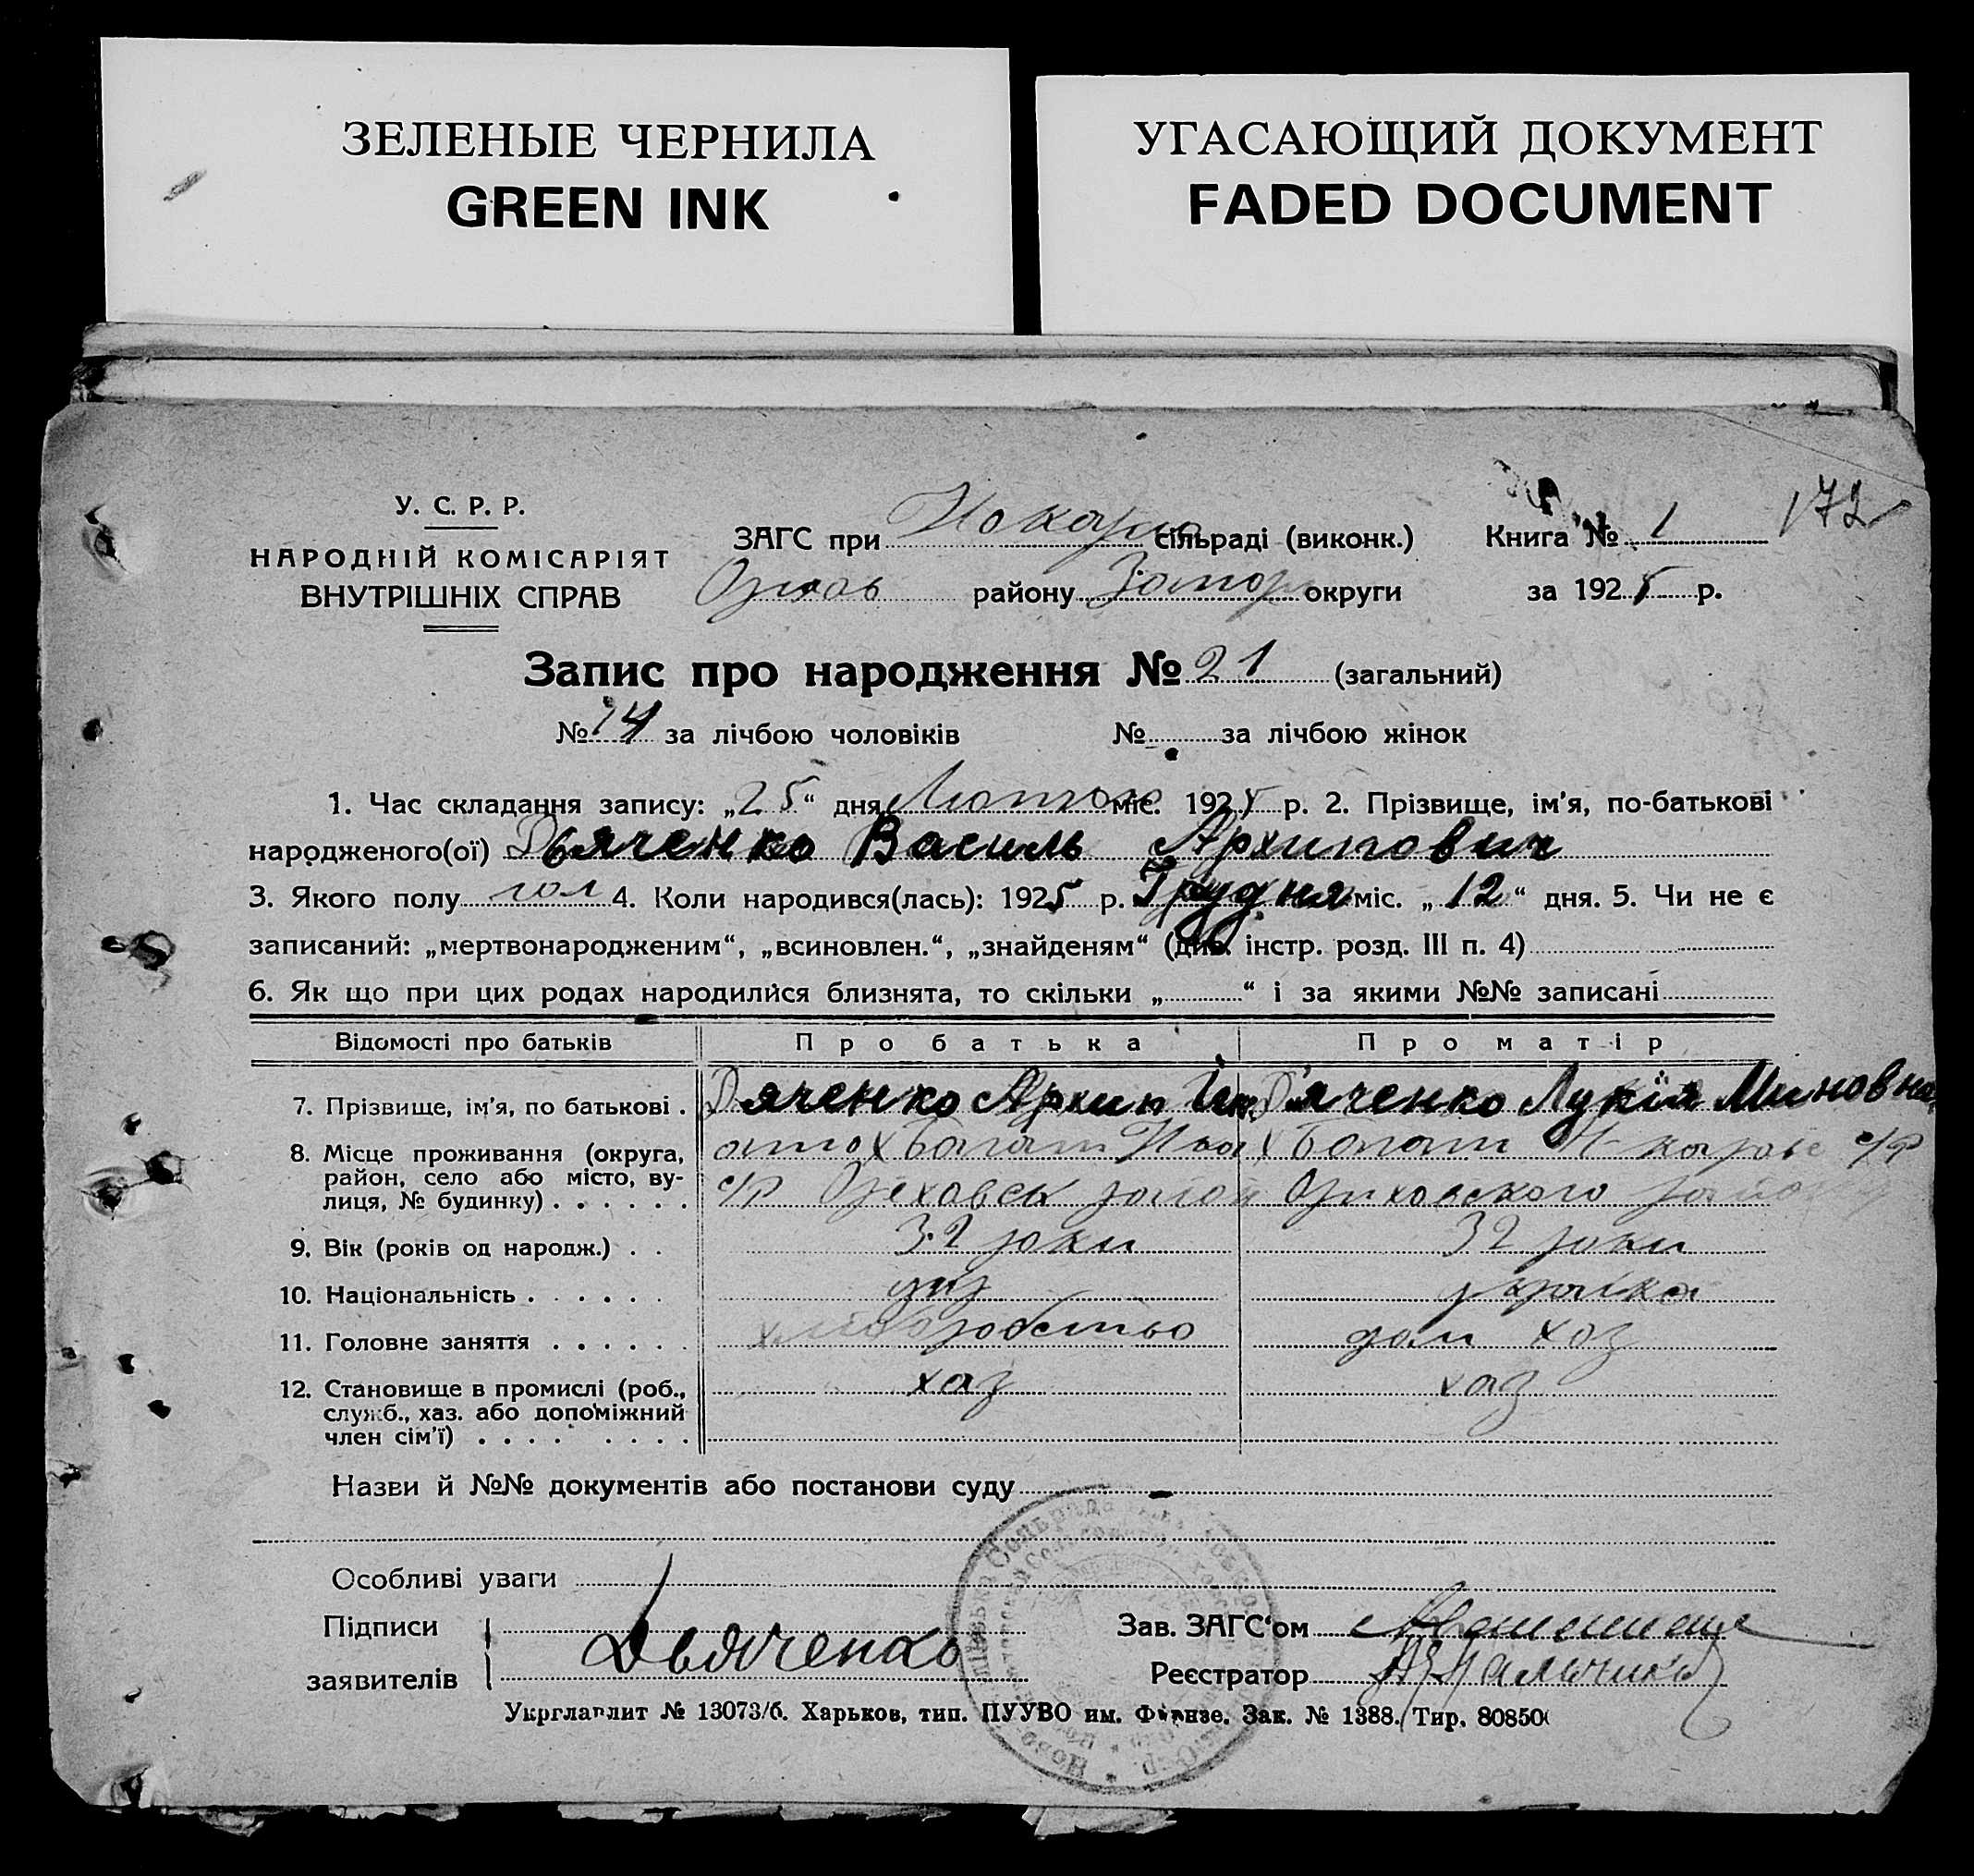 ЗЕЛЕНЫЕ ЧЕРНИЛА
GREEN INK
УГАСАЮЩИЙ ДОКУМЕНТ
FADED DOCUMENT
172
У. С. Р. Р.
НАРОДНІЙ КОМІСАРІЯТ
ВНУТРІШНІХ СПРАВ
ЗАГС при сільраді (виконк.) Книга № 1
району Запор округи за 1925 р.
Запис про народження № 21 (загальний)
№ 14 за лічбою чоловіків № за лічбою жінок
1. Час складання запису: „25“ дня Лютого міс. 1925 р. 2. Прізвище, ім'я, по-батькові
народженого(ої) Дьяченко Василь Архипович
3. Якого полу чол 4. Коли народився(лась): 1925 р. Грудня міс. „12“ дня. 5. Чи не є
записаний: „мертвонародженим“, „всиновлен.“, „знайденям“ (див. інстр. розд. III п. 4)
6. Як що при цих родах народилися близнята, то скільки „ “ і за якими №№ записані
Відомості про батьків Про батька Про матір
7. Прізвище, ім'я, по батькові . Дяченко Архип Д'яченко Лукія Миновна
8. Місце проживання (округа, х Багат х Богат с/р
район, село або місто, ву-
лиця, № будинку) . . . . . . с/р Оріховськ район Оріховского район
9. Вік (років од народж.) . . 32 роки 32 роки
10. Національність . . . . . . укр україка
11. Головне заняття . . . . . . хліборобство дом хоз
12. Становище в промислі (роб., хаз хаз
служб., хаз. або допоміжний
член сім'ї) . . . . . . . .
Назви й №№ документів або постанови суду
Особливі уваги
Підписи Зав. ЗАГС'ом
заявителів Дьяченко Реєстратор
Укрглавлит № 13073/б. Харьков, тип. ПУУВО им. Фрунзе. Зак. № 1388. Тир. 80850